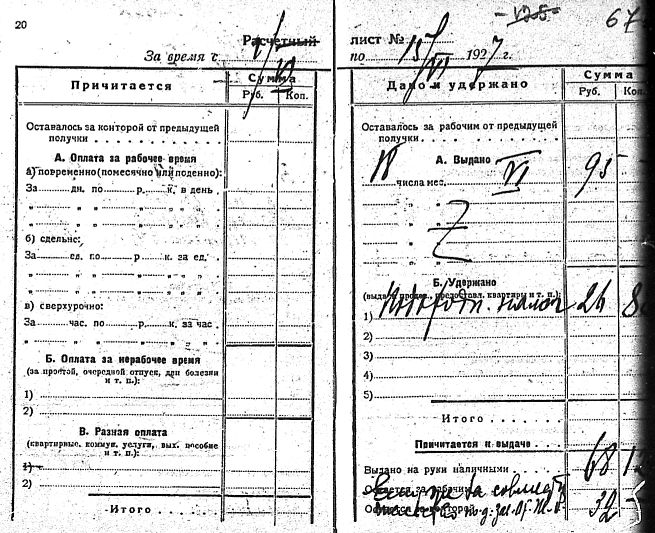 20
Расчетный
За время с
Причитается
Сумма
Руб. Коп.
Оставалось за конторой от предыдущей
получки
А. Оплата за рабочее время
а) повременно (помесячно или поденно):
За дн. по р. к. в день
„ „ „ „ „ „
„ „ „ „ „ „
б) сдельно:
За ед. по р. к. за ед.
„ „ „ „ „ „
„ „ „ „ „ „
в) сверхурочно:
За час. по р. к. за час
„ „ „ „ „ „
Б. Оплата за нерабочее время
(за простой, очередной отпуск, дни болезни
и т. п.):
1)
2)
В. Разная оплата
(квартирные, коммун. услуги, вых. пособие
и т. п.):
1)
2)
Итого
125
67
лист № 15
по VI 1927 г.
Дано и удержано
Сумма
Руб. Коп.
Оставалось за рабочим от предыдущей
получки
А. Выдано
18 числа мес. VI 95 -
„ „
„ „
„ „
Б. Удержано
(выдано продов., предоставл. квартиры и т. п.):
1) налог 26 8
2)
3)
4)
5)
Итого
Причитается к выдаче
Выдано на руки наличными 68 1
за рабочим
за конторой 32